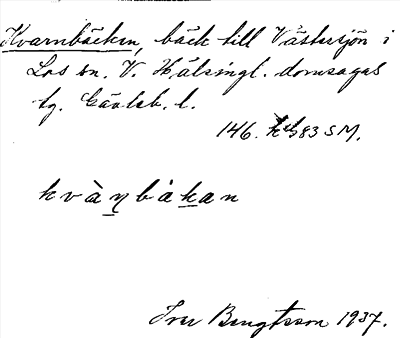 Kvarnbäcken, bäck till Västersjön i
Los sn. V. Hälsingl. domsagas
tg. Gävleb. l.
146. 83 SM.
kvàṉbàḵan
Ivar Bengtsson 1937.